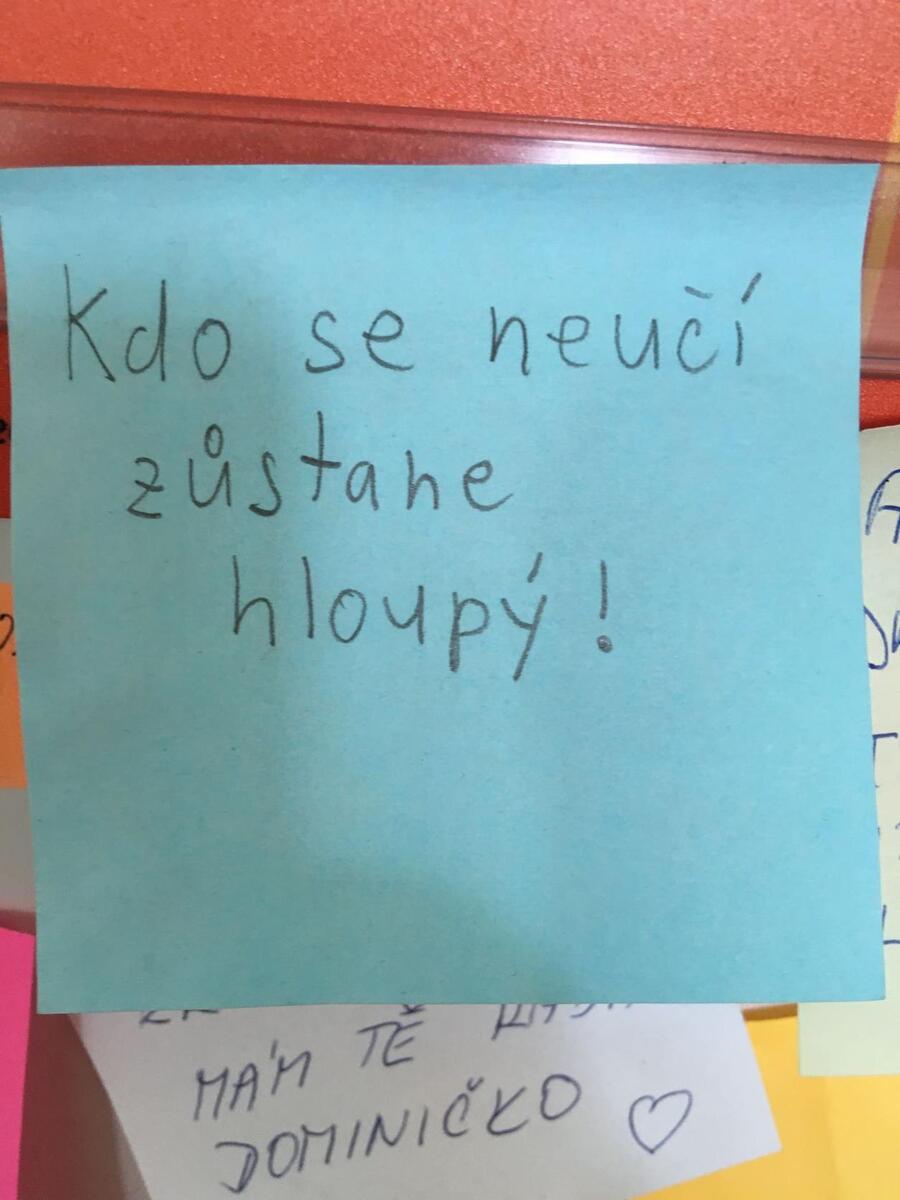 Kdo se neučí
zůstane
hloupý!
MÁM TĚ
DOMINIČKO ♡